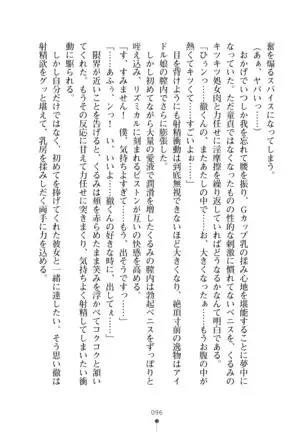 奮を煽るスパイスになってしまう。
（あぁ、ヤバいっ……）
おかげでいつしか我を忘れて腰を振り、Ｇカップ乳の揉み心地を堪能することに夢中
になっていた。ただ、いまだ童貞でなくなったものの性的な刺激に慣れてないペニスを、くるみの
キツキツ処女肉と力任せに淫摩擦を繰り返していればどうなるかなんて明白である。
「ひぅンっ……徹くんの、まぁたあたしの中でっ……大きくなったぁ……もうお腹の中が
熱くてキツくて……すごいよぉ……」
目を背けようにも射精衝動は到底無視できないほど大きくなり、絶頂寸前の逸物はアイ
ドル娘の膣内でさらに膨張した。
初めてながら大量の愛液で潤滑を増したくるみの膣内は勃起ペニスをずっぽりと
咥え込み、リズミカルに繰り出されるピストンが互いの快感を高める。
「す、すみません！　僕、気持ちよすぎて……もう、出そうですっ……」
「あふぅ……ンっ！　いい、いいよ……徹くんの好きな時に、出してぇ……」
限界が近いことを告げると、くるみは頬を赤らめたまま笑みを浮かべてコクコクと頷い
てくれた。もうその反応に甘えて力任せに突きまくり、気持ちよく射精してしまいたい衝
動に駆られる。
しかし自分だけではなく、初めてを捧げてくれた彼女と一緒に達したい。そう思い徹は
射精欲をグッと堪えて、乳房を揉みしだく両手に力を込める。
096